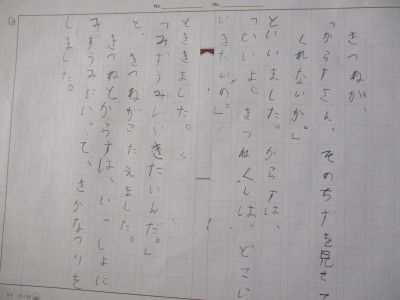 きつねが、
「からすさん、そのちずを見せて
くれないか。」
といいました。からすは、
「いいよ。きつねくんは、どこに
いきたいの。」
とききました。
「みずうみにいきたいんだ。」
と、きつねがこたえました。
きつねとからすは、いっしょに
みずうみにいって、さかなつりを
しました。
No.
No.